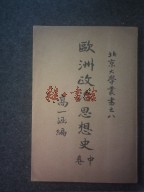 北京大學叢書之八
歐洲政治思想史 中卷
高一涵編